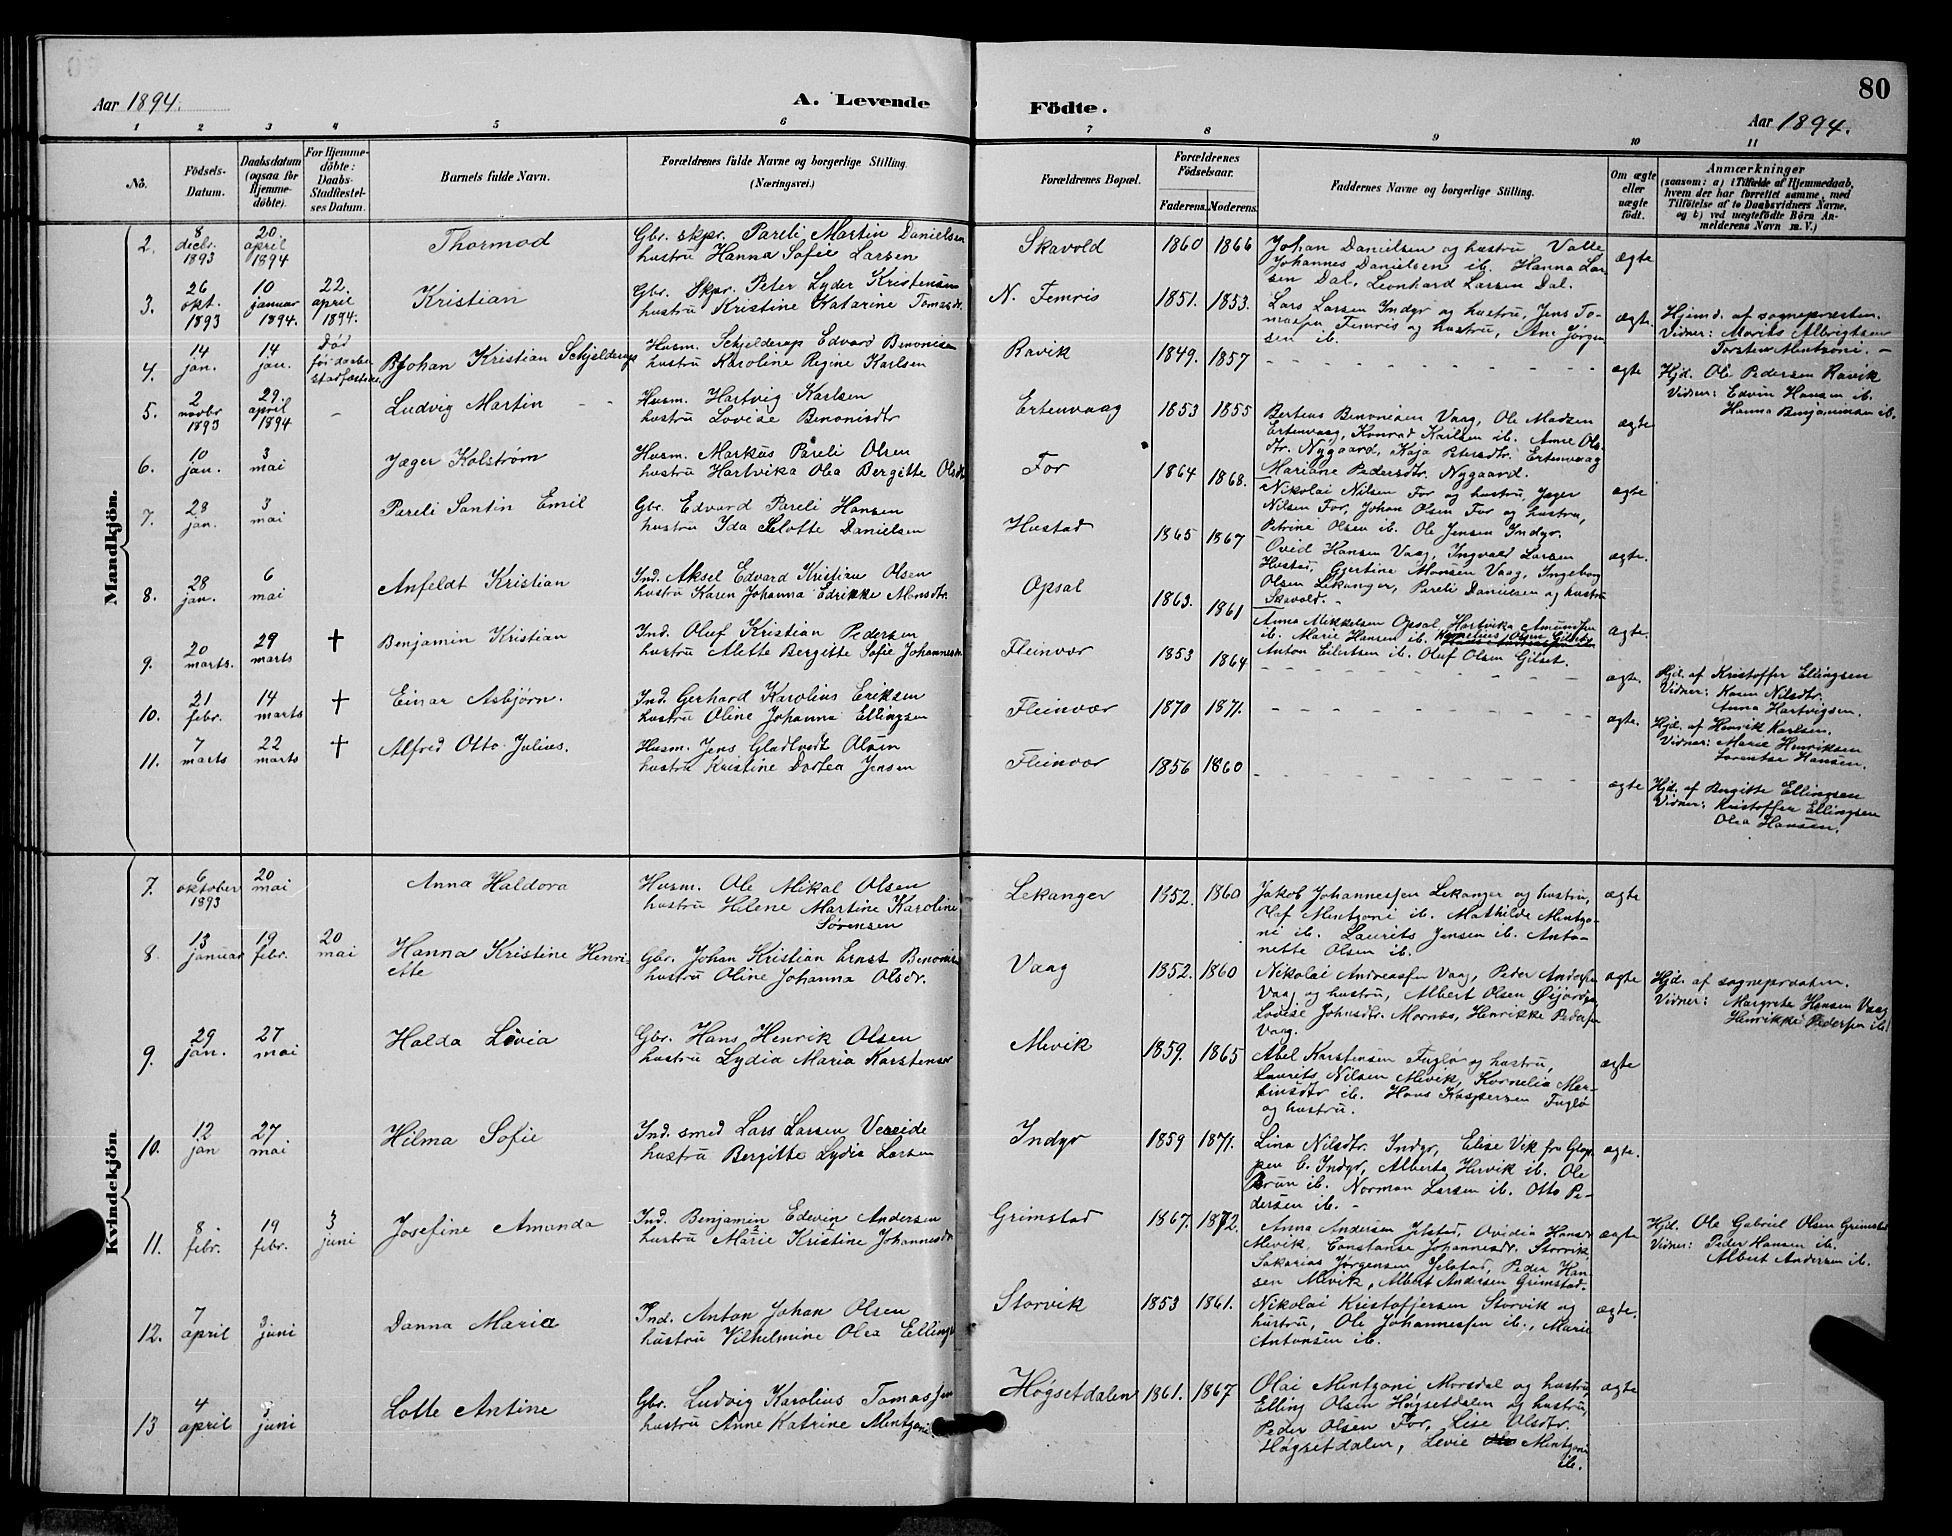 80
Aar 1894. A. Levende Födte. Aar 1894.
1 2 3 4 5 6 7 8 9 10 11
No. Födsels-Datum. Daabsdatum (ogsaa for Hjemme-döbte). For Hjemme-döbte: Daabs-Stadfæstel-ses Datum. Barnets fulde Navn. Forældrenes fulde Navne og borgerlige Stilling. (Næringsvei.) Forældrenes Bopæl. Forældrenes Födselsaar. Faderens. Moderens. Faddernes Navne og borgerlige Stilling. Om ægte eller uægte födt. Anmærkninger (saasom: a) i Tilfælde af Hjemmedaab, hvem der har forrettet samme, med Tilföielse af to Daabsvidners Navne, og b) ved uægtefödte Börn An-melderens Navn m. V.)
Mandkjön.
2. 8 decbr. 1893 20. april 1894 Thormod Gbr. skpr. Pareli Martin Danielsen
hustru Hanna Sofie Larsen
Skavold 1860 1866 Johan Danielsen og hustru Valle
Johannes Danielsen ib. Hanna Lar
sen Dal, Leonhard Larsen Dal.
ægte
3. 26 okt. 1893 10 januar 1894. 22. april 1894. Kristian Gbr. Skpr. Peter Lyder Kristensen
hustru Kristine Katarine Tomasdr.
N. Femris 1851. 1853. Lars Larsen Indyr og hustru, Jens To-
massen, Femris og hustru, Ane Jørgen
sen ib.
ægte Hjemd. af sognepresten.
Vidner: Morits Albrigtsen
Torsten Mentzoni. -
4. 14 jan. 14 jan. Død før daabs stadfæstelse Johan Kristian Schjelderup Husm. Schjelderup Edvard Benonisen
hustru Karoline Regine Karlsen
Ravik 1849. 1857 - - - ægte Hjd. Ole Pedersen Ravik
Vidner: Edvin Hansen ib.
Hanna Benjaminsen ib.
5. 2 novbr 1893 29. april 1894 - Ludvig Martin - - Husm. Hartvig Karlsen
hustru Lovise Benonisdr
Ertenvaag 1853 1855 Berteus Benonisen Vaag, Ole Madsen
Ertenvaag, Konrad Karlsen ib. Anne Ols-
dtr. Nygaard, Kaja Petersdtr. Ertenvaag
Mariane Pedersdtr. Nygaard.
ægte
6. 10 jan. 3 mai Jæger Kolstrøm Husm. Markus Pareli Olsen
hustru Hartvika Olea Bergitte Olsdr
For 1864 1868. Nikolai Nilsen For og hustru, Jæger
Nilsen For, Johan Olsen For og hustru,
Petrine Olsen ib. Ole Jensen Indyr.
ægte
7. 28 jan. 3 mai Pareli Santin Emil Gbr. Edvard Pareli Hansen
hustru Ida Selotte Danielsen
Hustad 1865 1867 Ovid Hansen Vaag, Ingvald Larsen
Hustad, Gjertine Monsen Vaag, Ingeborg
Olsen Lekanger, Pareli Danielsen og hustru
Skavold. -
ægte.
8. 28 jan. 6 mai Anfeldt Kristian Ind. Aksel Edvard Kristian Olsen
hustru Karen Johanna Edrikke Monsdtr.
Opsal 1863. 1861 Anna Mikkelsen Opsal, Hartvika Amundsen
ib. Marie Hansen ib. Kornelius Olsen Gilset
Anton Eilertsen ib. Oluf Olsen Gilset.
ægte.
9. 20 marts. 29 marts † Benjamin Kristian Ind. Oluf Kristian Pedersen
hustru Alette Bergitte Sofie Johannesdr
Fleinvær 1853 1864 - - - ægte. Hjd. af Kristoffer Ellingsen
Vidner: Karen Nilsdtr.
Anna Hartvigsen.
10. 21 febr. 14 marts † Einar Asbjørn. Ind. Gerhard Karolius Eriksen
hustru Oline Johanna Ellingsen
Fleinvær 1870 1871. - - - ægte. Hjd. af Henrik Karlsen.
Vidner: Marie Henriksen
Lorentse Hansen.
11. 7 marts 22 marts † Alfred Otto Julius. Husm. Jens Gladtvedt Olsen
hustru Kristine Dortea Jensen
Fleinvær 1856 1860 - - - ægte Hjd. af Birgitte Ellingsen
Vidner: Kristoffer Ellingsen
Olea Hansen.
Kvindekjön
7. 6 oktober 1893 20 mai Anna Haldora Husm. Ole Mikal Olsen
hustru Helene Martine Karoline
Sørensen
Lekanger 1852. 1860 Jakob Johannessen Lekanger og hustru,
Olaf Mentzoni ib. Mathilde Mentzo-
ni ib. Laurits Jensen ib. Anto-
nette Olsen ib.
ægte
8. 13 januar 19 febr. 20 mai Hanna Kristine Henri-
ette
Gbr. Johan Kristian Ernst Benonisen
hustru Oline Johanna Olsdr.
Vaag 1852. 1860 Nikolai Andreassen Vaag, Peder Andersen
Vaag og hustru, Albert Olsen Øijord,
Lovise Johnsdtr. Mornæs, Henrikke Pedersen
Vaag.
ægte Hjd. af sognepresten.
Vidner: Margrete Hansen Vaag
Henrikke Pedersen ib.
9. 29 jan. 27 mai Halda Livia Gbr. Hans Henrik Olsen
hustru Lydia Maria Karstensen
Mevik 1859. 1865 Abel Karstensen Fuglø og hustru,
Laurits Nilsen Mevik, Kornelia Mar-
tinsdtr ib. Hans Kaspersen Fuglø
og hustru.
ægte
10. 12 jan 27 mai Hilma Sofie Ind. smed Lars Larsen Vereide
hustru Bergitte Lydia Larsen
Indyr 1859 1871. Lina Nilsdtr. Indyr, Elise Vik fra Glop-
pen b. Indyr, Alberta Hervik ib. Ole
Brun ib. Norman Larsen ib. Otto Pe-
dersen ib. -
ægte.
11. 8. febr. 19 febr. 3 juni Josefine Amanda Ind. Benjamin Edevin Andersen
hustru Marie Kristine Johannesdr
Grimstad 1867. 1872. Anna Andersen Jelstad, Ovidia Hansdr
Mevik, Constanse Johannesdr. Storvik,
Sakarias Jørgensen Jelstad, Peder Han-
sen Mevik, Albert Andersen Grimstad.
ægte Hjd. Ole Gabriel Olsen Grimstad
Vidner: Peder Hansen ib.
Albert Andersen ib.
12. 7 april 3 juni Danna Maria Ind. Anton Johan Olsen
hustru Vilhelmine Olea Ellings
Storvik 1853 1861. Nikolai Kristoffersen Storvik og
hustru, Ole Johannessen ib., Marie
Antonsen ib.
ægte.
13 4 april 3 juni Lotte Antine Gbr. Ludvig Karolius Tomassen
hustru Anne Katrine Mentzoni
Høgsetdalen 1861. 1867 Olai Mentzoni Morsdal og hustru,
Elling Olsen Høgsetdalen og hustru,
Peder Olsen For, Lise Olsdtr.
Høgsetdalen, Levie Mentzoni
ib.
ægte